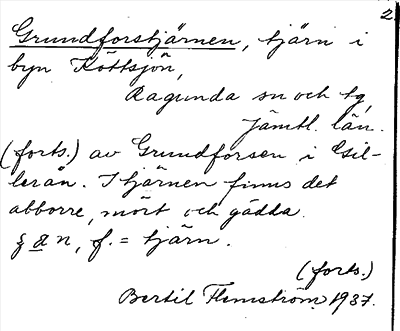 2
Grundforstjärnen, tjärn i
byn Köttsjön,
Ragunda sn och tg,
Jämtl. län.
(forts.) av Grundforsen i Gil-
lerån. I tjärnen finns det
abborre, mört och gädda.
n, f. = tjärn.
(forts.)
Bertil Flemström 1937.